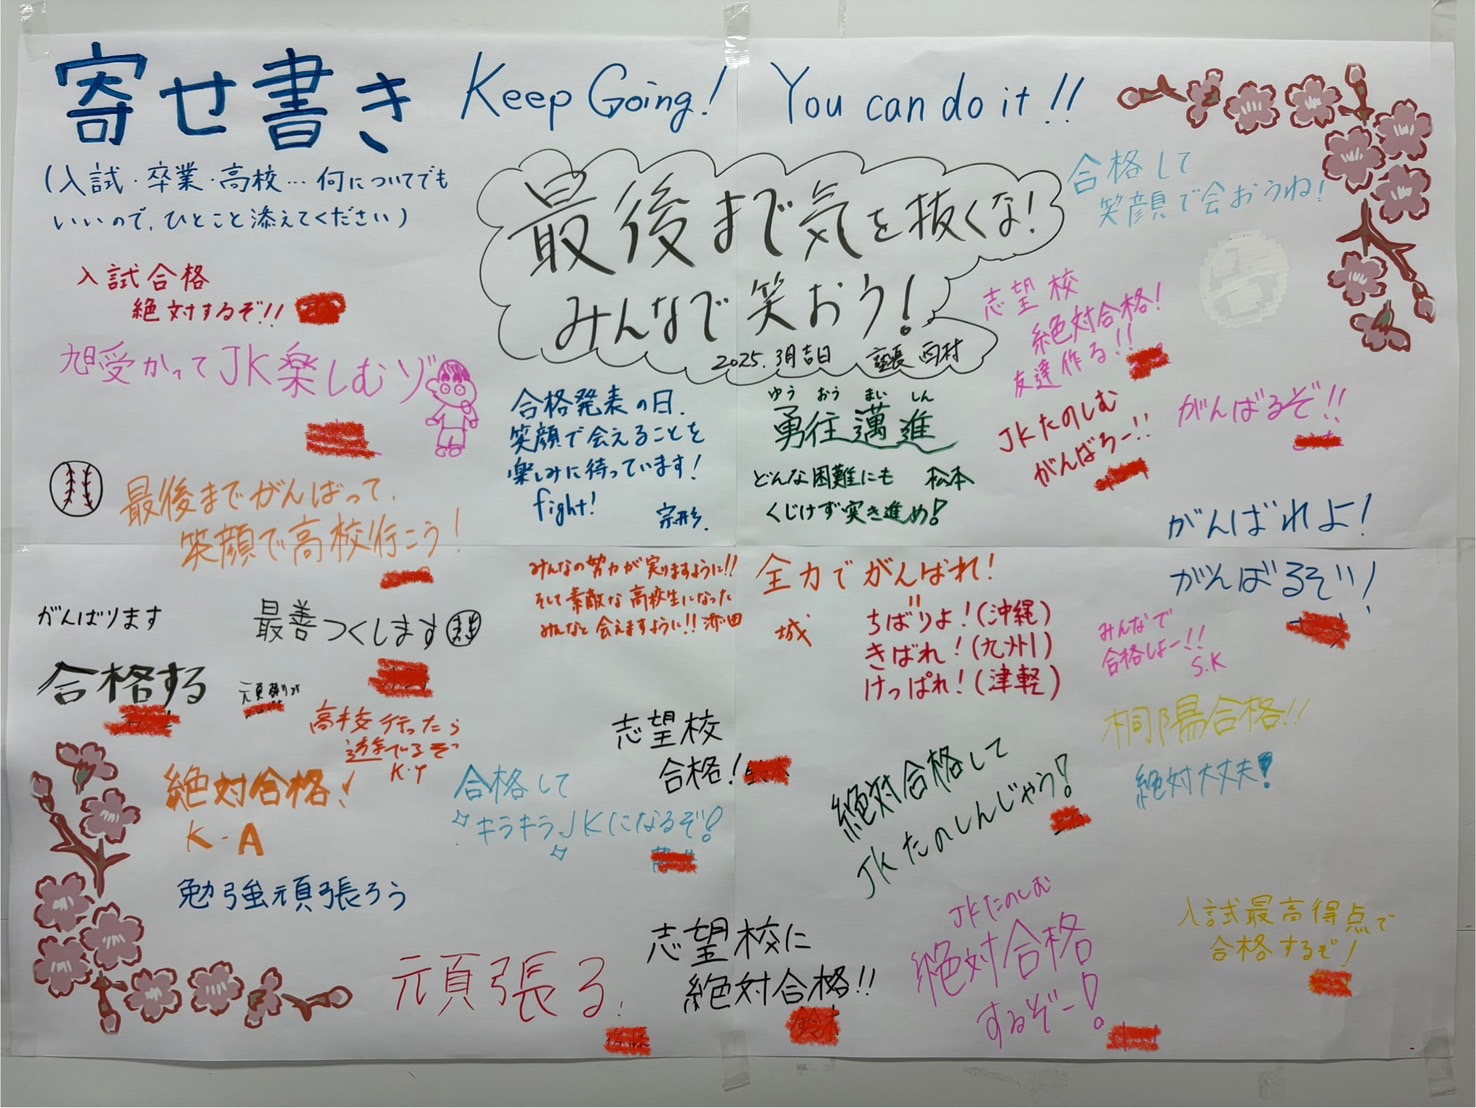 寄せ書き
Keep Going! You can do it!!
(入試・卒業・高校…何についてでも
いいので、ひとこと添えてください)
最後まで気を抜くな!
みんなで笑おう!
2025.3月吉日 室長 西村
合格して
笑顔で会おうね!
入試合格
絶対するぞ!!
旭受かってJK楽しむゾ
志望校
絶対合格!
友達作る!!
合格発表の日、
笑顔で会えることを
楽しみに待っています!
fight!
宗形
ゆう おう まい しん
勇往邁進
どんな困難にも 松本
くじけず突き進め!
JKたのしむ
がんばろー!!
がんばるぞ!!
最後までがんばって、
笑顔で高校行こう!
がんばれよ!
がんばるぞ!!
がんばります
最善つくします
みんなの努力が実りますように!!
そして素敵な高校生になった
みんなと会えますように!! 添田
全力でがんばれ!
城
ちばりよ!(沖縄)
きばれ!(九州)
けっぱれ!(津軽)
みんなで
合格しよー!!
S.K
合格する
頑張りま
高校行ったら
K.Y
志望校
合格!
桐陽合格!!
絶対大丈夫!
絶対合格!
K-A
合格して
キラキラJKになるぞ!
絶対合格して
JKたのしんじゃう!
勉強頑張ろう
頑張る.
志望校に
絶対合格!!
JKたのしむ
絶対合格
するぞー!
入試最高得点で
合格するぞ!